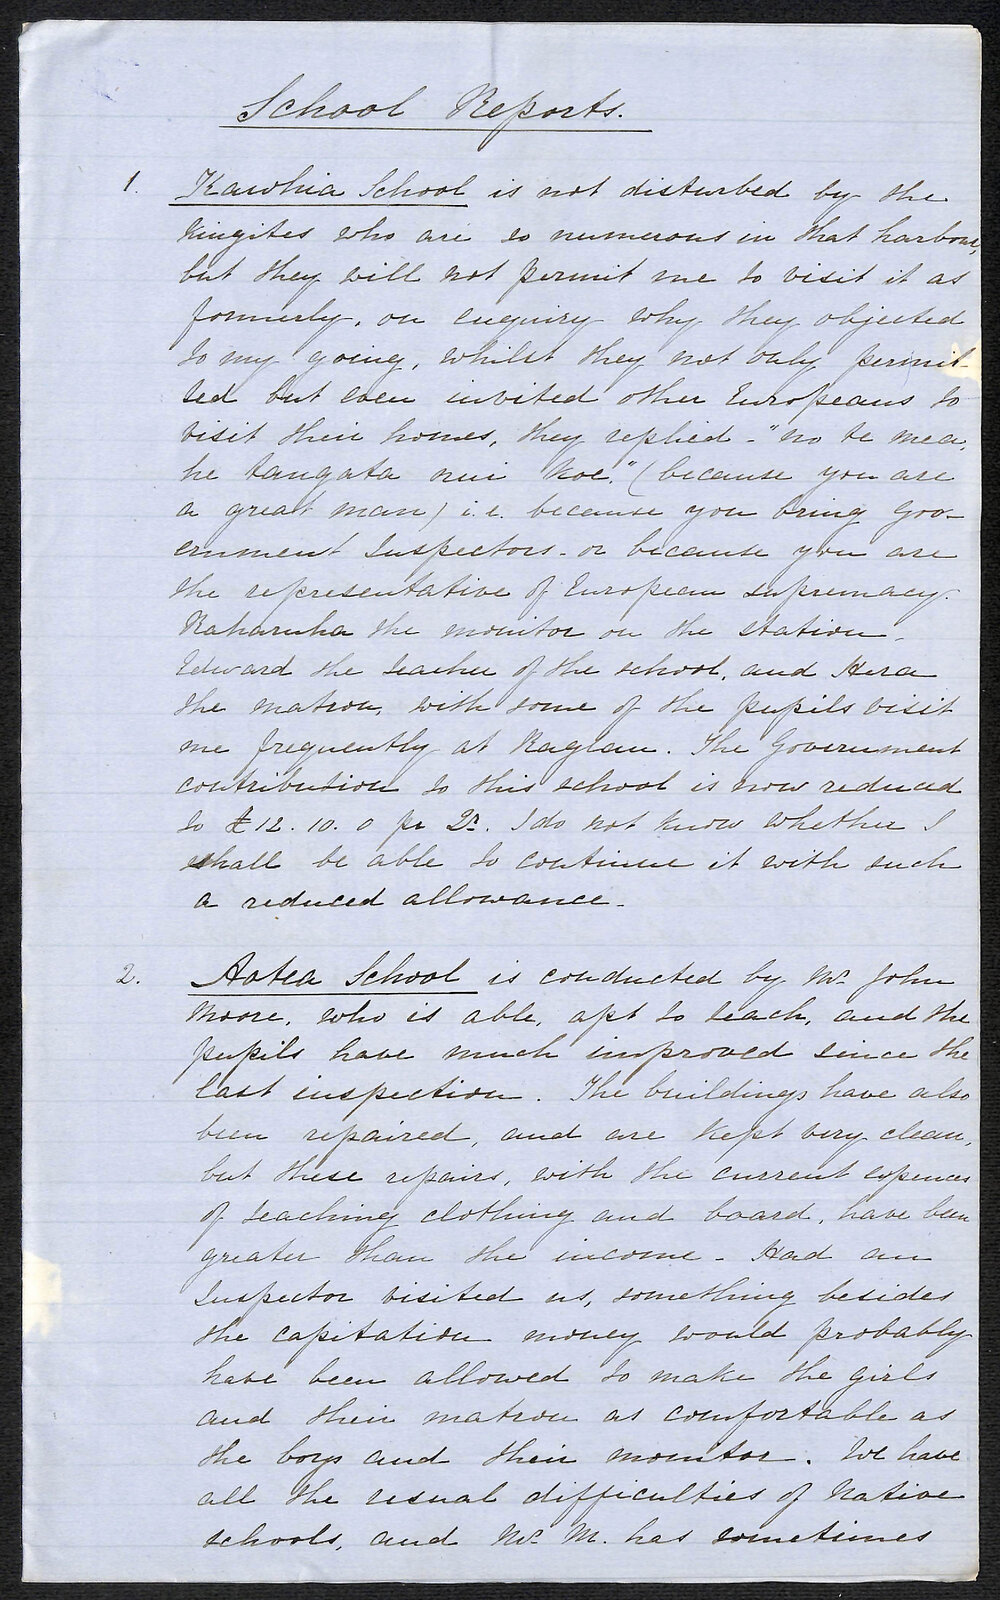 School Reports.
1. Kawhia School is not disturbed by the
Kingites who are so numerous in that harbour,
but they will not permit me to visit it as
formerly. on enquiry why they objected
to my going, whilst they not only permit-
ted but even invited other Europeans to
visit their homes, they replied - "no te mea,
he tangata nui koe." (because you are
a great man) i.e. because you bring Gov-
ernment Inspectors - or because you are
the representative of European supremacy.
Raharuha the monitor on the station -
Edward the teacher of the school, and Hera
the matron, with some of the pupils visit
me frequently at Raglan. The Government
contribution to this school is now reduced
to £12. 10. 0 pr Qr. I do not know whether I
shall be able to continue it with such
a reduced allowance -
2. Aotea School is conducted by Mr John
Moore, who is able, apt to teach, and the
pupils have much improved since the
last inspection. The buildings have also
been repaired, and are kept very clean,
but these repairs, with the current expences
of teaching clothing and board, have been
greater than the income - Had an
Inspector visited us, something besides
the capitation money would probably
have been allowed to make the girls
and their matron as comfortable as
the boys and their monitor. We have
all the usual difficulties of Native
schools, and Mr M. has sometimes